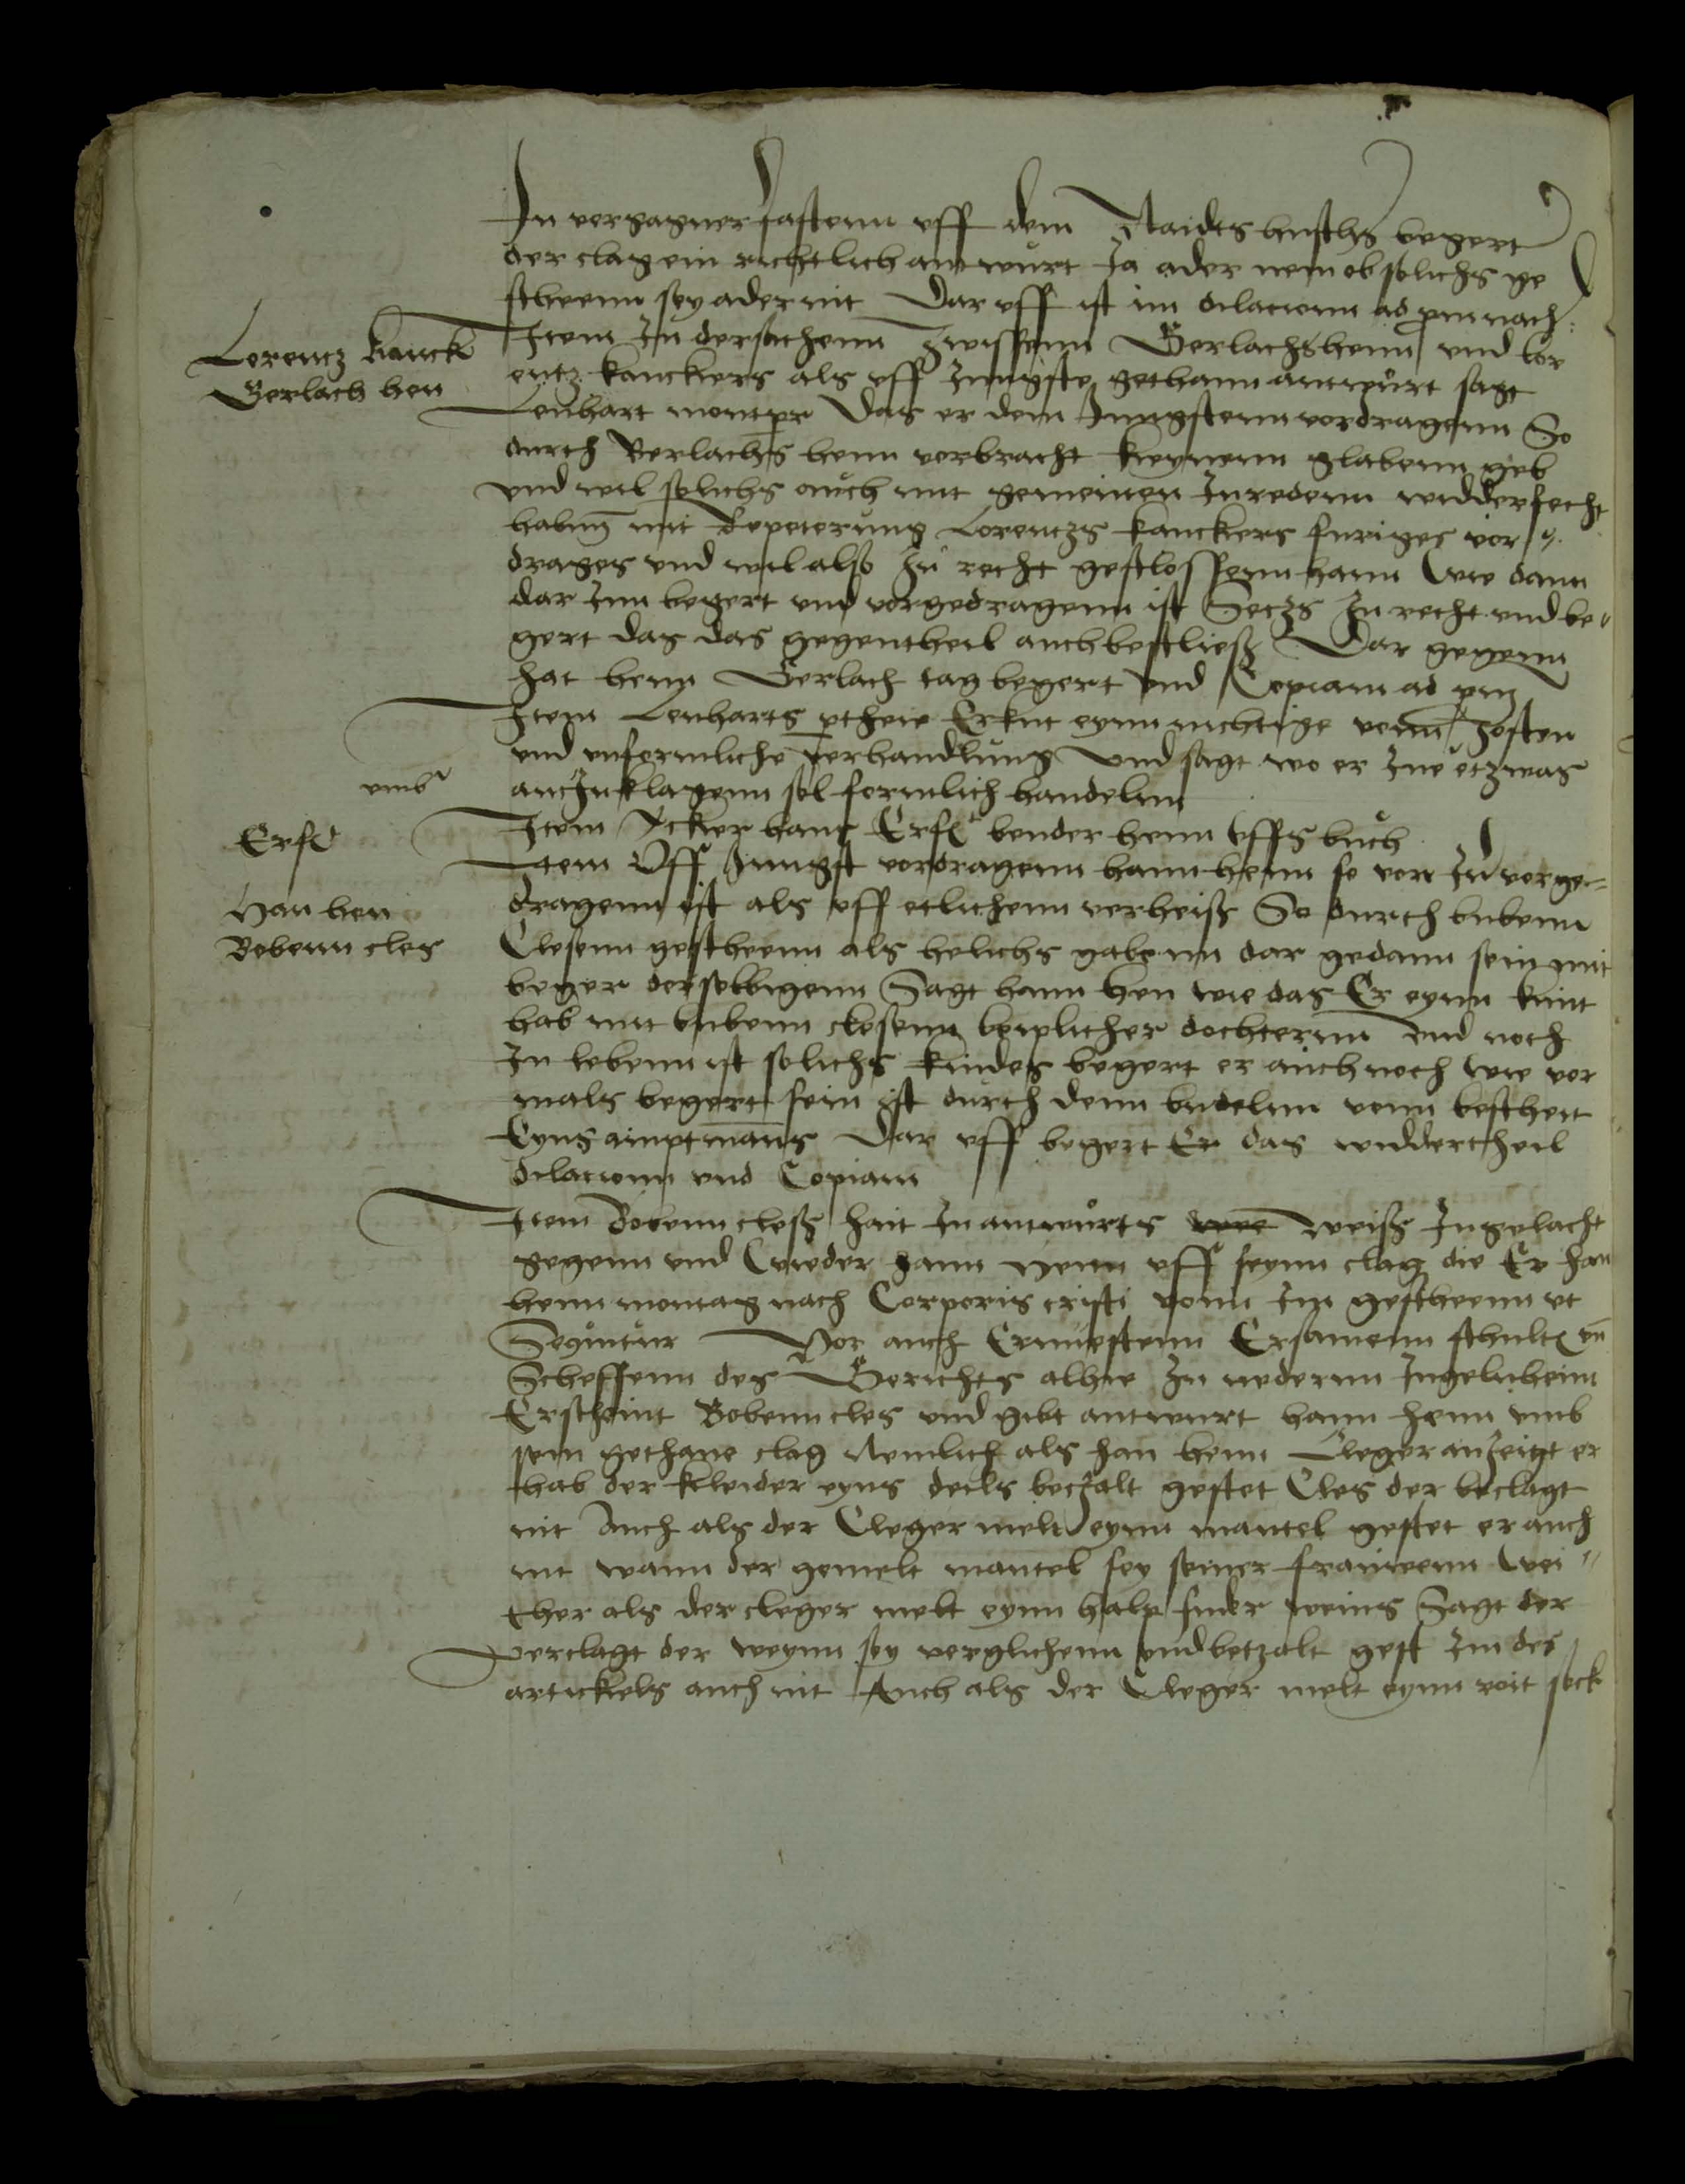 In vergagner fastenn uff dem Raidtshusthß begert
der clag ein richtlich antwurt Ja ader nein ob solichs ge
scheenn sey ader nit Dar uff ist im dilacionn ad prm nach
Lorentz kanck
Gerlach hen
Item In dersachenn Zwissenn Gerlachshenn und lor
entz kanckers als uff Jungste gethann antwurt sagt
Lenhart Das er dem Jungstenn vordragenn So
durch Gerlachs henn vorbracht keynenn glabenn geb
und wil solichs auch mit gemeinen Inredenn widderfecht
habnn mit Repeterung Lorentzs kanckers furiges vor
drages und wil alß Zu recht geslossenn hann Wie dann
dar Inn begert und vorgedragenn ist Setzs Zu recht und be
gert das das gegentheil auch besließ Dar gegenn
hat henn Gerlach tag begert und Copiam ad prm
Item Lenharts Erknt eynn nichtige
und unformliche verhandlung und sagt wo er Zuv etzwas
umb
antzuklagenn sol formlich handelnn
Erft
Item Acker hans Erft bender henn uffs buch
Item Uff Jungst vordragenn hann henn so von Im vorge
Han hen
Bobenn cles
dragenn ist als uff etlichenn verheiß So durch bubenn
Clesenn gescheenn als helichs gabenn dar gedann sein mit
beger derselbigenn Sagt hann hen wie das Er eynn kint
hab mit bubenn clesenn lieplicher dochterm und noch
In lebenn ist solichs kindes begert er auch noch wie vor
mals begert sein ist durch denn budelnn vonn bescheit
Eyns amptmans Dar uff begert Er das widdertheil
dilacionn und Copiam
Item Bobenn cleß hait In antwurts weiß Ingelacht
gegenn und Wieder hann Henn uff seynn clag die Er han
henn montag nach Corporis cristi vonn Im gescheenn ut
Sequitur Vor auch Ernvestenn Ersamenn schulteß un
Scheffenn des Gerichts alhie Zu nedernn Ingelnheim
Erscheint Bobenn cles und gibt antwurt hann henn umb
sein gethane clag Nemlich als han henn Cleger anzeigt er
hab der kleider eyns deils betzalt gestet Cles der beclagt
nit Auch als der Cleger melt eynn mantel gestet er auch
nit wann der gemelt mantel sey seiner frauwenn Wei
ther als der cleger melt eynn halp fuder weins Sagt der
verclagt der weynn sey verglichenn und betzalt gest Im des
artickels auch nit Auch als der Cleger melt eynn rott seck